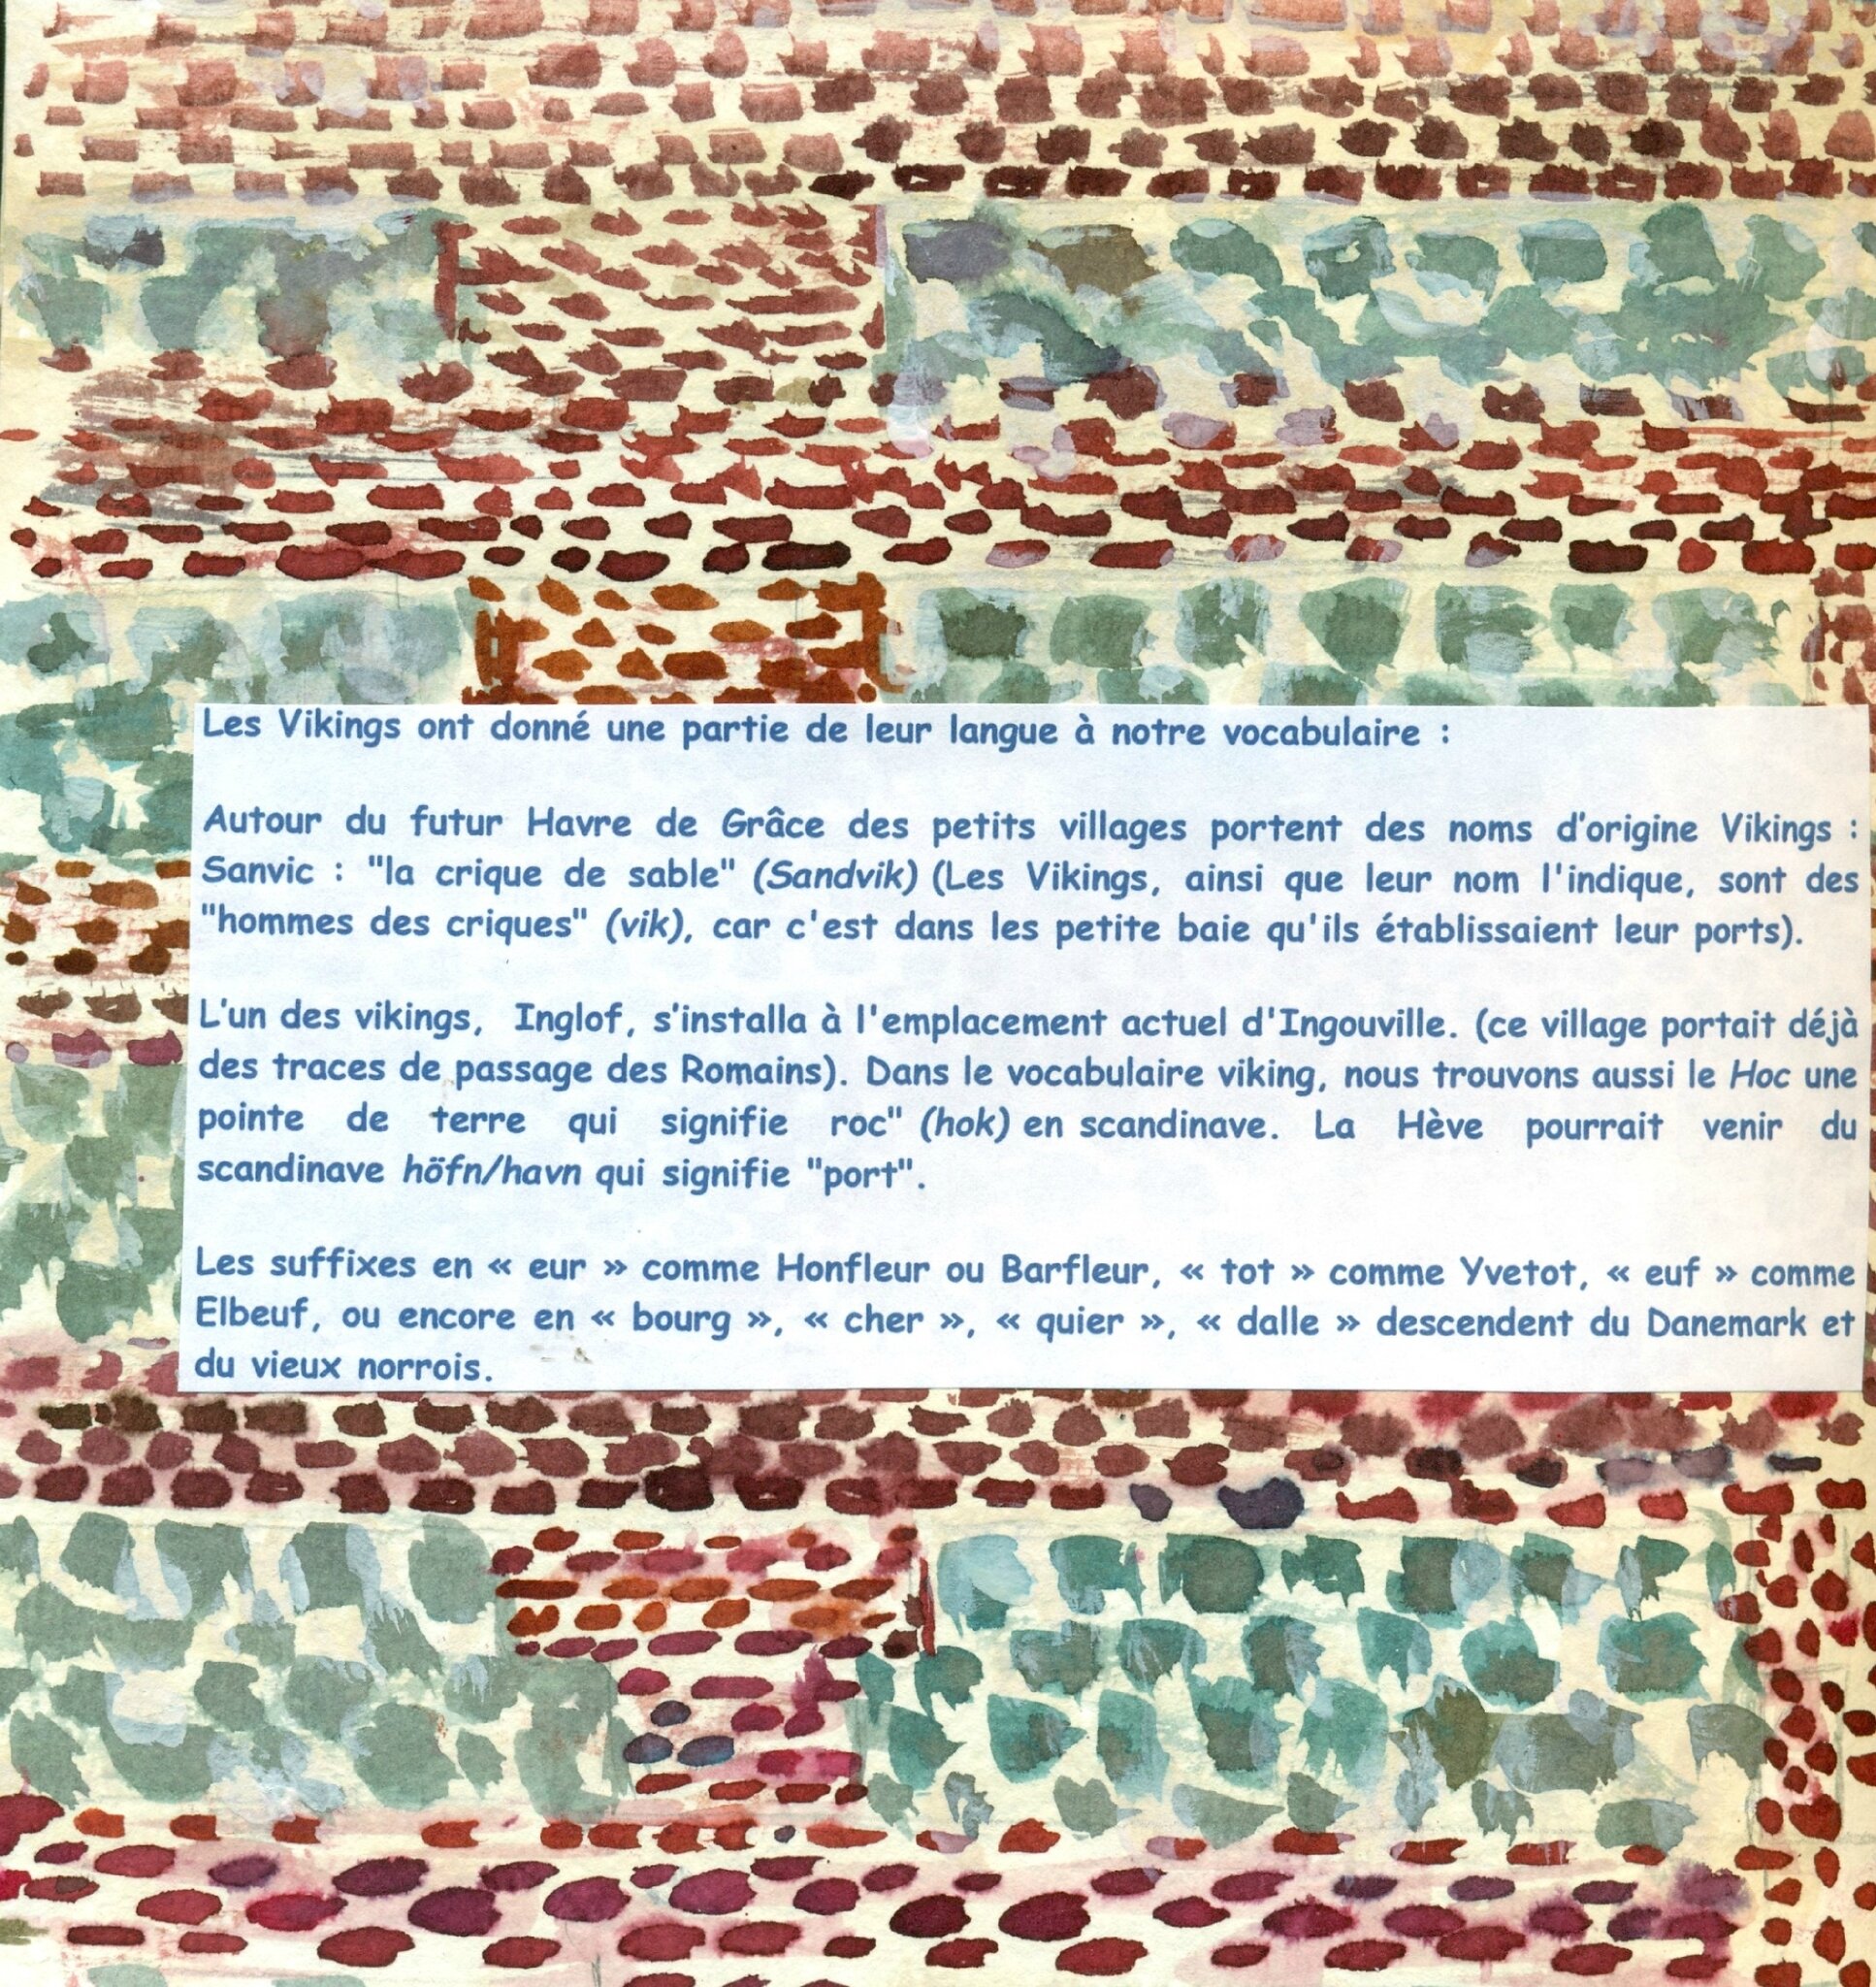 Les Vikings ont donné une partie de leur langue à notre vocabulaire :
Autour du futur Havre de Grâce des petits villages portent des noms d'origine Vikings :
Sanvic : "la crique de sable" (Sandvik) (Les Vikings, ainsi que leur nom l'indique, sont des
"hommes des criques" (vik), car c'est dans les petite baie qu'ils établissaient leur ports).
L'un des vikings, Inglof, s'installa à l'emplacement actuel d'Ingouville. (ce village portait déjà
des traces de passage des Romains). Dans le vocabulaire viking, nous trouvons aussi le Hoc une
pointe de terre qui signifie roc" (hok) en scandinave. La Hève pourrait venir du
scandinave höfn/havn qui signifie "port".
Les suffixes en « eur » comme Honfleur ou Barfleur, « tot » comme Yvetot, « euf » comme
Elbeuf, ou encore en « bourg », « cher », « quier », « dalle » descendent du Danemark et
du vieux norrois.